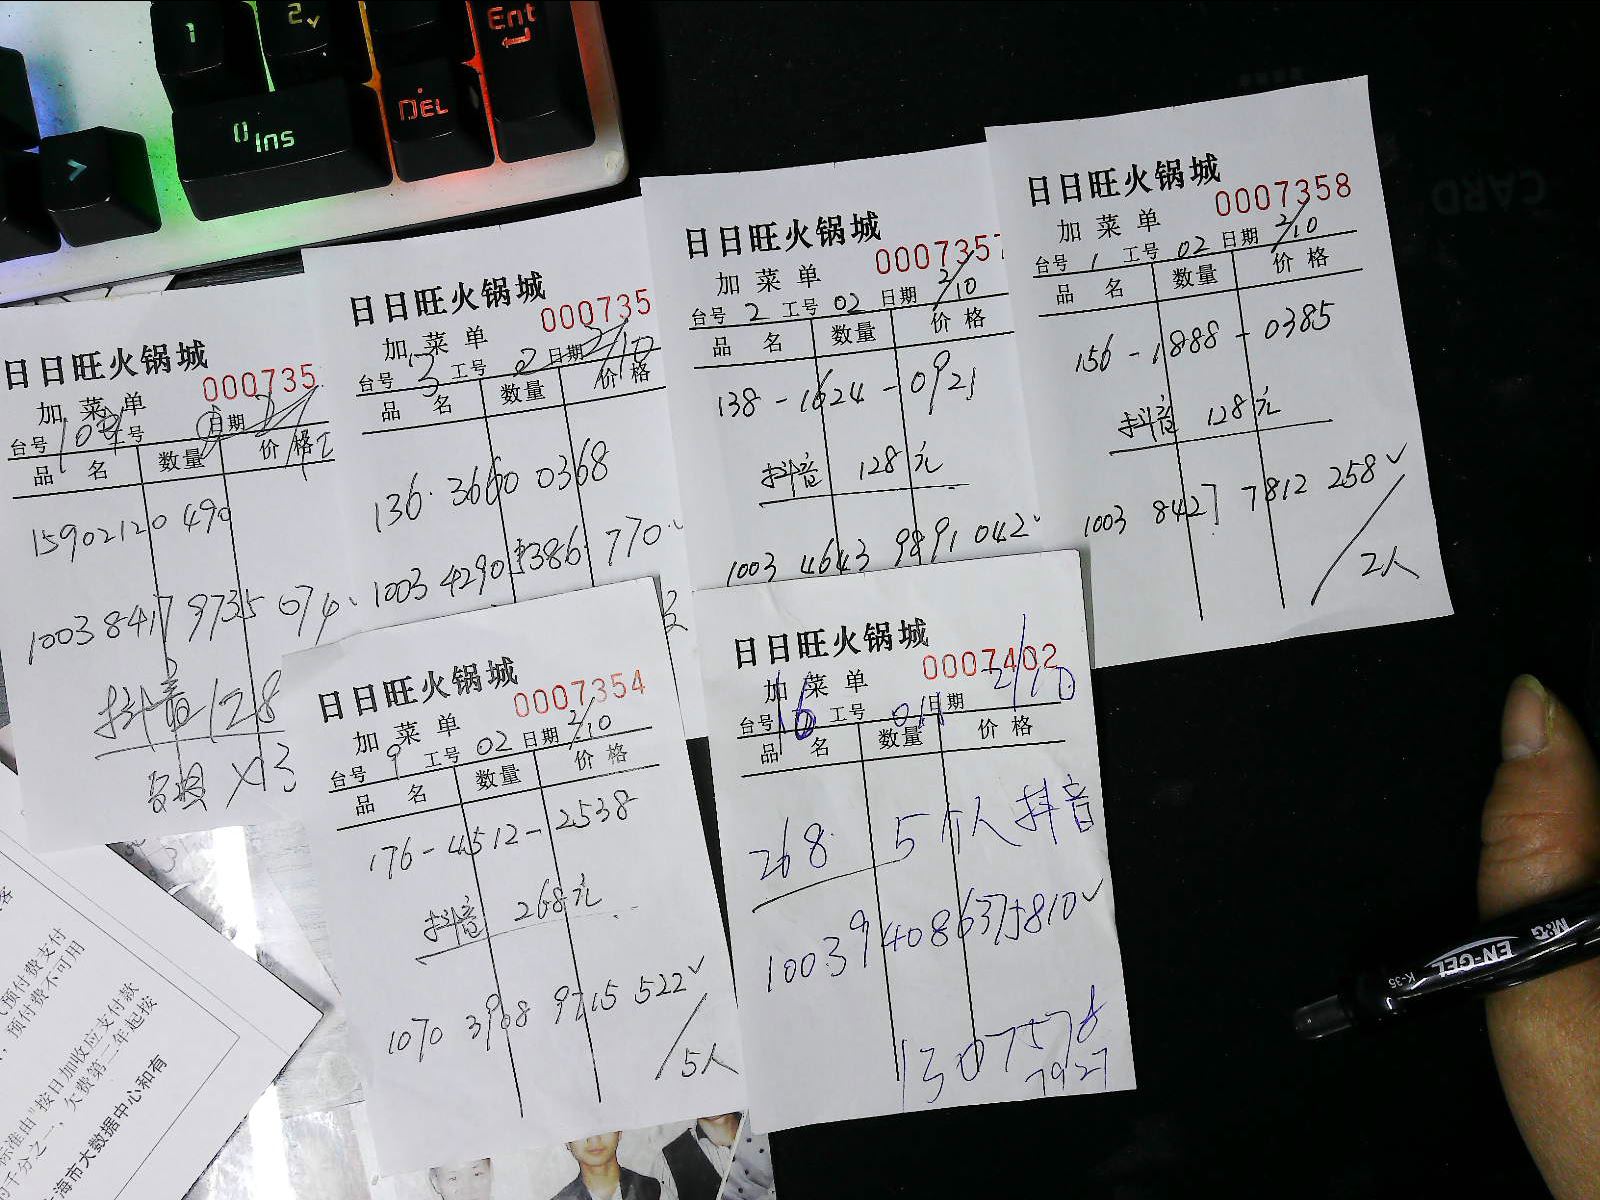 1
2
Ent
0 Ins
DEL
日日旺火锅城
000735
加菜单
台号 工号 日期
品名 数量 价格
15902120490
1003 8417 9735 074
抖音128
日日旺火锅城
000735
加菜单
台号 3 工号 02 日期 2/10
品名 数量 价格
136 · 3660 0368
1003 4290 5386 770
日日旺火锅城
0007357
加菜单
台号 2 工号 02 日期 2/10
品名 数量 价格
138-1624-0921
抖音 128元
1003 4643 9891 042
日日旺火锅城
0007358
加菜单
台号 1 工号 02 日期 2/10
品名 数量 价格
156-1888-0385
抖音 128元
1003 8427 7812 258
2人
日日旺火锅城
0007354
加菜单
台号 9 工号 02 日期 2/10
品名 数量 价格
176-4512-2538
抖音 268元
1070 3968 9215 522
5人
日日旺火锅城
0007402
加菜单
台号 16 工号 01 日期 2/10
品名 数量 价格
268 5个人抖音
100394086375810
1307578
7927
预付费支付
预付费不可用
标准由"按日加收应支付款
千分之一,欠费第二年起按
海市大数据中心和有
M&G EN-GEL K-35
CARD